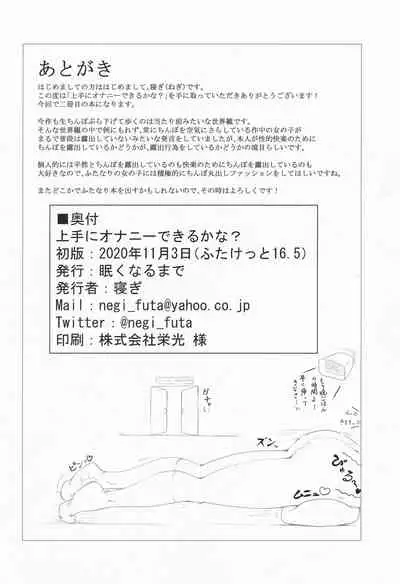 あとがき
はじめましての方ははじめまして、寝ぎ(ねぎ)です。
この度は「上手にオナニーできるかな?」を手に取っていただきありがとうございます!
今回で二冊目の本になります。
今作も生ちんぽぶら下げて歩くのは当たり前みたいな世界観です。
そんな世界観の中で例にもれず、常にちんぽを空気にさらしている作中の女の子が
まるで普段は露出していないみたいな発言をしていましたが、本人が性的快楽のために
ちんぽを露出しているかどうかが、露出行為をしているかどうかの境目らしいです。
個人的には平然とちんぽを露出しているのも快楽のためにちんぽを露出しているのも
大好きなので、ふたなりの女の子には積極的にちんぽ丸出しファッションをしてほしいですね。
またどこかでふたなり本を出すかもしれないので、その時はよろしくです!
■奥付
上手にオナニーできるかな?
初版:2020年11月3日(ふたけっと16.5)
発行:眠くなるまで
発行者:寝ぎ
Mail:negi_futa@yahoo.co.jp
Twitter:@negi_futa
印刷:株式会社栄光 様
もう晩ごはん
の時間よー
早く帰って
ガチャッ
ズン。
ピン♡
びゅる
ムニュ♡